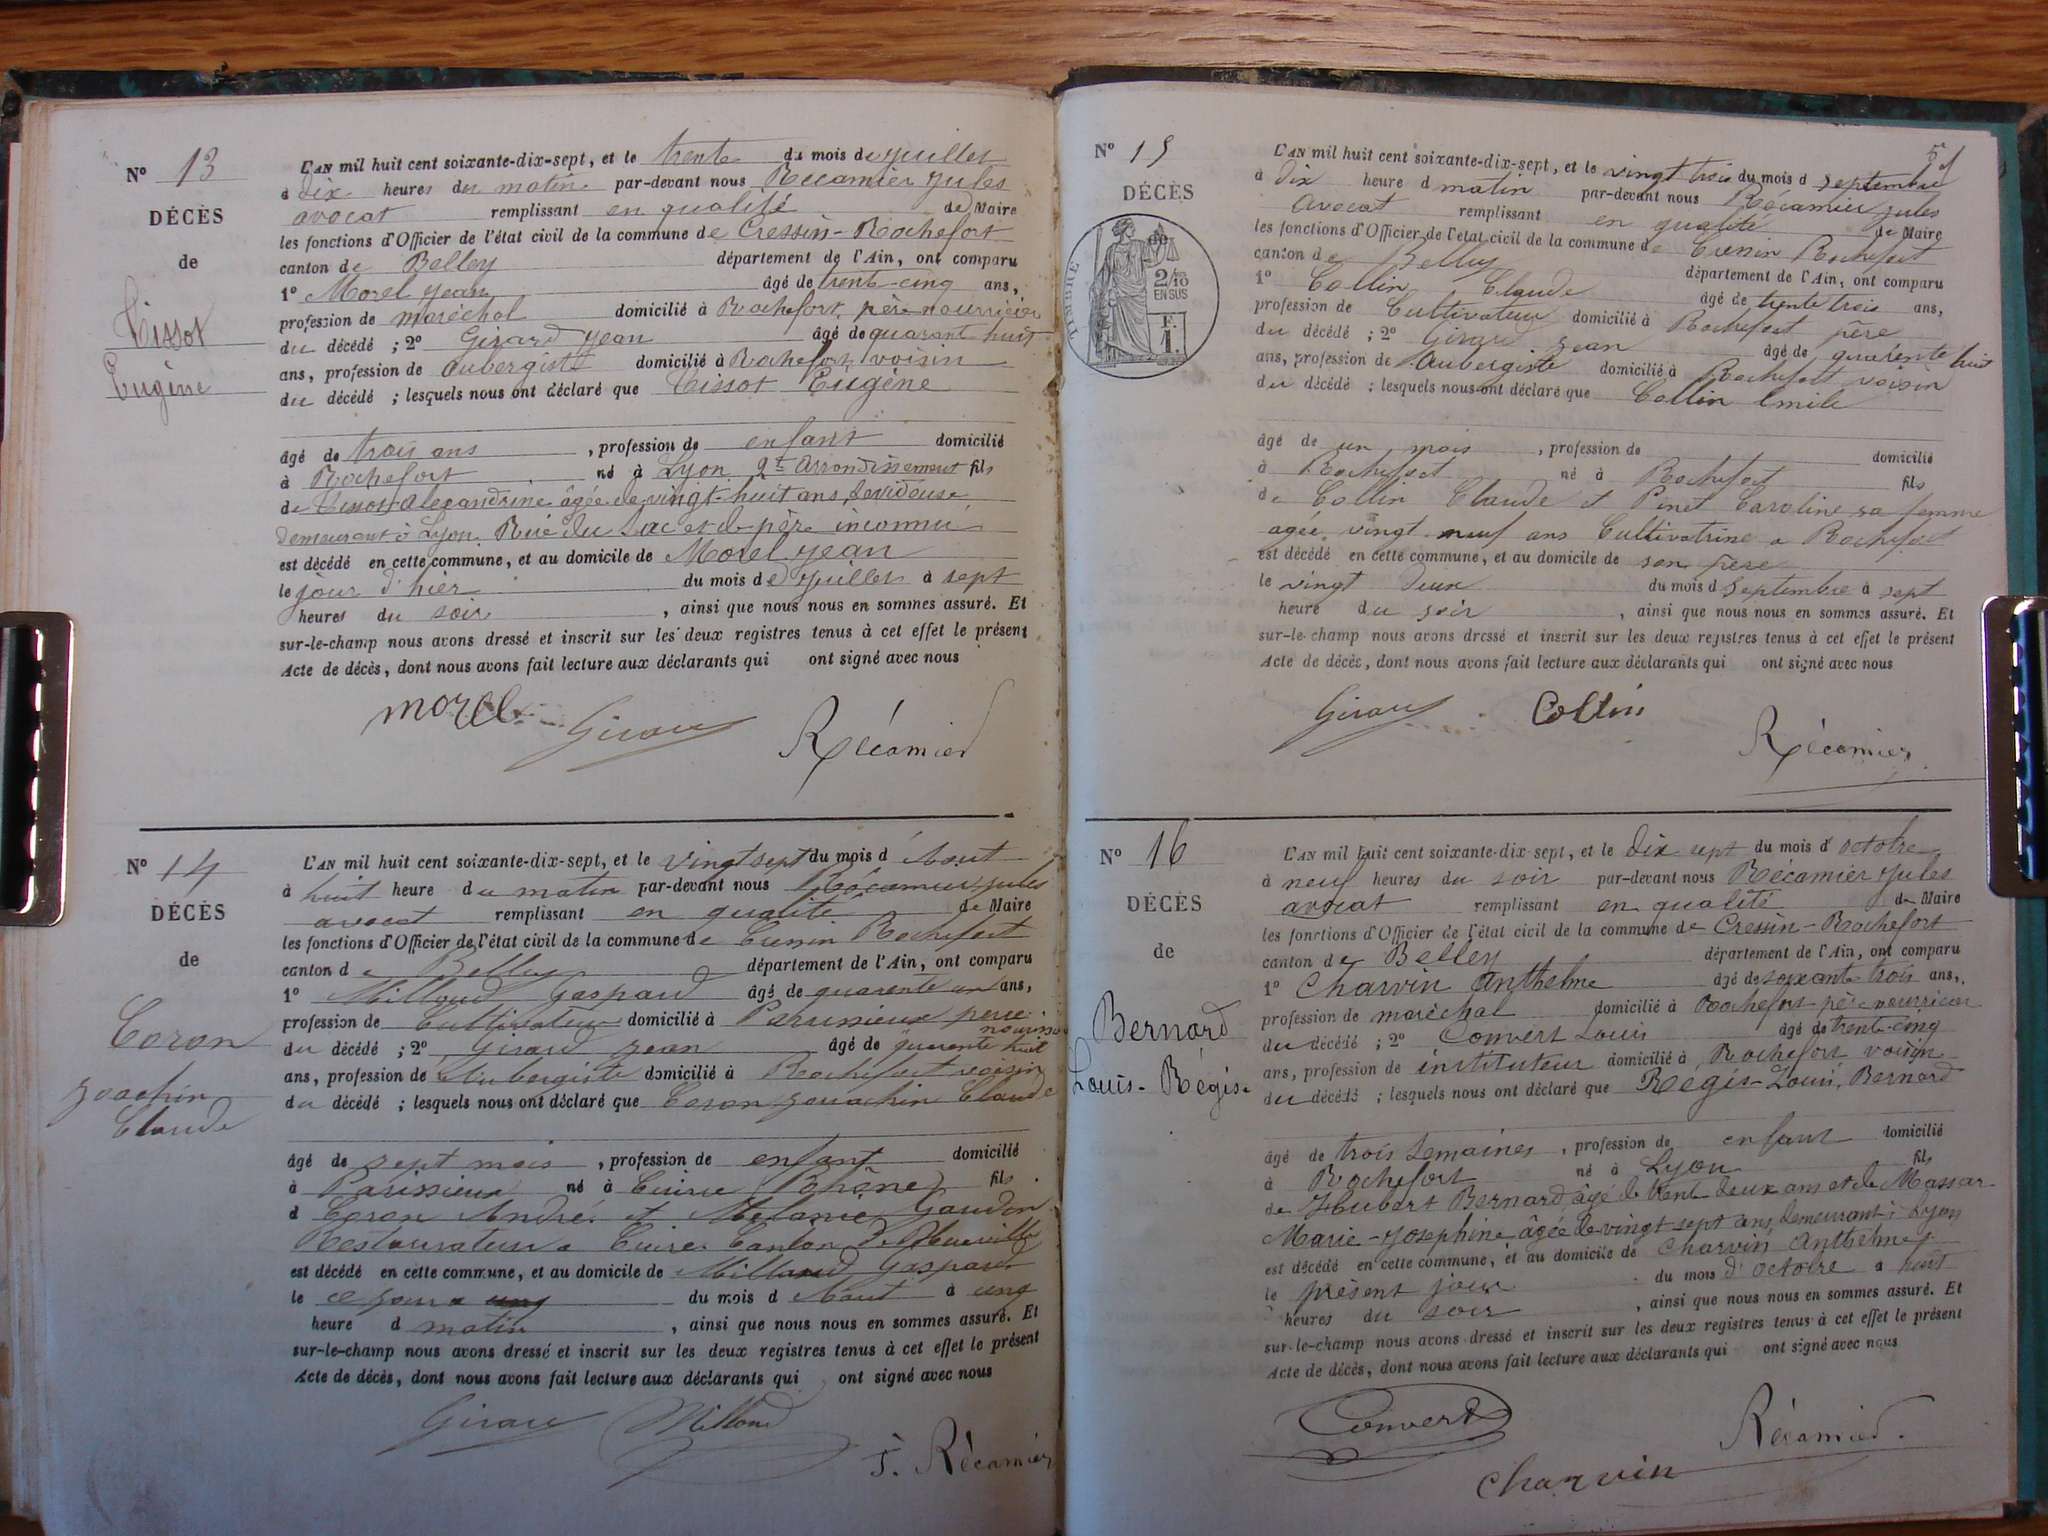 Nº 13
DÉCÈS
de
Tissot
Eugène
L'AN mil huit cent soixante-dix-sept, et le trente du mois de juillet
à dix heures du matin par-devant nous Récamier Jules
avocat remplissant en qualité de Maire
les fonctions d'Officier de l'état civil de la commune de Cressin-Rochefort
canton de Belley département de l'Ain, ont comparu
1º Morel Jean âgé de trente-cinq ans,
profession de maréchal domicilié à Rochefort, père nourricier
du décédé ; 2º Girard Jean âgé de quarante huit
ans, profession de aubergiste domicilié à Rochefort, voisin
du décédé ; lesquels nous ont déclaré que Tissot Eugène
âgé de trois ans , profession de enfant domicilié
à Rochefort né à Lyon 2e arrondissement fils
de Tissot Alexandrine âgée de vingt-huit ans, dévideuse
demeurant à Lyon Rue du Sac et de père inconnu
est décédé en cette commune, et au domicile de Morel Jean
le jour d'hier du mois de juillet à sept
heures du soir , ainsi que nous nous en sommes assuré. Et
sur-le-champ nous avons dressé et inscrit sur les deux registres tenus à cet effet le présent
Acte de décès, dont nous avons fait lecture aux déclarants qui ont signé avec nous
morel Girard Récamier
Nº 14
DÉCÈS
de
Coron
Joachin
Claude
L'AN mil huit cent soixante-dix-sept, et le vingt sept du mois d Aout
à huit heure du matin par-devant nous Récamier Jules
avocat remplissant en qualité de Maire
les fonctions d'Officier de l'état civil de la commune de Cressin Rochefort
canton de Belley département de l'Ain, ont comparu
1º Milloud Gaspard âgé de quarente un ans,
profession de Cultivateur domicilié à Parissieux père
nourricier
du décédé ; 2º Girard Jean âgé de quarente huit
ans, profession de Aubergiste domicilié à Rochefort voisin
du décédé ; lesquels nous ont déclaré que Coron Jouachin Claude
âgé de sept mois , profession de enfant domicilié
à Parissieux né à Cuire (Rhône) fils
d Coron André et Mélanie Gaudon
Restaurateur a Cuire Canton de Neuville
est décédé en cette commune, et au domicile de Milloud Gaspard
le ce jour a ung du mois d Aout à ung
heure d matin , ainsi que nous nous en sommes assuré. Et
sur-le-champ nous avons dressé et inscrit sur les deux registres tenus à cet effet le présent
Acte de décès, dont nous avons fait lecture aux déclarants qui ont signé avec nous
Girard Milloud
J. Récamier
51
Nº 15
DÉCÈS
TIMBRE
2/10
EN SUS
F.
1.
L'AN mil huit cent soixante-dix-sept, et le vingt trois du mois d septembre
à dix heure d matin par-devant nous Récamier Jules
avocat remplissant en qualité de Maire
les fonctions d'Officier de l'état civil de la commune de Cressin Rochefort
canton de Belley département de l'Ain, ont comparu
1º Collin Claude âgé de trente trois ans,
profession de Cultivateur domicilié à Rochefort père
du décédé ; 2º Girard Jean âgé de quarente huit
ans, profession de Aubergiste domicilié à Rochefort voisin
du décédé ; lesquels nous ont déclaré que Collin Emile
âgé de un mois , profession de domicilié
à Rochefort né à Rochefort fils
de Collin Claude et Pinet Caroline sa femme
agée vingt neuf ans Cultivatrine a Rochefort
est décédé en cette commune, et au domicile de son père
le vingt deux du mois d septembre à sept
heure du soir , ainsi que nous nous en sommes assuré. Et
sur-le-champ nous avons dressé et inscrit sur les deux registres tenus à cet effet le présent
Acte de décès, dont nous avons fait lecture aux déclarants qui ont signé avec nous
Girard Collin
Récamier
Nº 16
DÉCÈS
de
Bernard
Louis-Régis
L'AN mil huit cent soixante-dix-sept, et le dix sept du mois d'octobre
à neuf heures du soir par-devant nous Récamier Jules
avocat remplissant en qualité de Maire
les fonctions d'Officier de l'état civil de la commune de Cressin-Rochefort
canton de Belley département de l'Ain, ont comparu
1º Charvin Anthelme âgé de soixante trois ans,
profession de maréchal domicilié à Rochefort père nourricier
du décédé ; 2º Convert Louis âgé de trente-cinq
ans, profession de instituteur domicilié à Rochefort voisin
du décédé ; lesquels nous ont déclaré que Régis-Louis Bernard
âgé de trois semaines , profession de enfant domicilié
à Rochefort né à Lyon fils
de Hubert Bernard, âgé de trente deux ans et de Massar
Marie-Josephine âgée de vingt sept ans, demeurant à Lyon
est décédé en cette commune, et au domicile de Charvin Anthelme
le présent jour du mois d'octobre à huit
heures du soir , ainsi que nous nous en sommes assuré. Et
sur-le-champ nous avons dressé et inscrit sur les deux registres tenus à cet effet le présent
Acte de décès, dont nous avons fait lecture aux déclarants qui ont signé avec nous
Convert Récamier.
Charvin